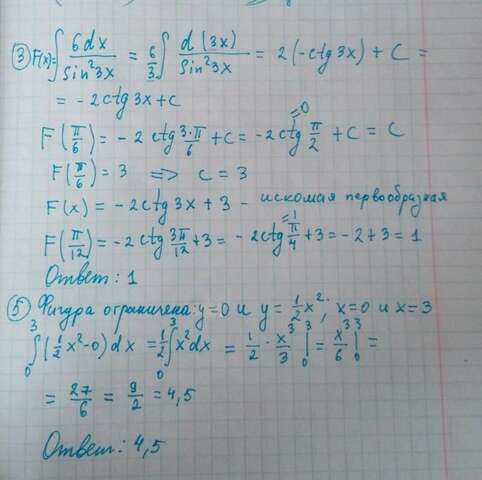 ③ F(x)=∫ 6dx/Sin²3x = 6/3 ∫ d(3x)/Sin²3x = 2(-ctg3x) + C =
= -2ctg3x+c
F(π/6) = -2ctg 3·π/6 + c = -2ctg π/2 + c = C
=0
F(π/6) = 3 => c = 3
F(x) = -2ctg3x + 3 - искомая первообразная
F(π/12) = -2ctg 3π/12 + 3 = -2ctg π/4 + 3 = -2+3 = 1
=1
Ответ: 1
⑤ Фигура ограничена: y=0 и y = 1/2 x², x=0 и x=3
∫₀³ (1/2 x²-0) dx = 1/2 ∫₀³ x² dx = 1/2 · x³/3 |₀³ = x³/6 |₀³ =
= 27/6 = 9/2 = 4,5
Ответ: 4,5